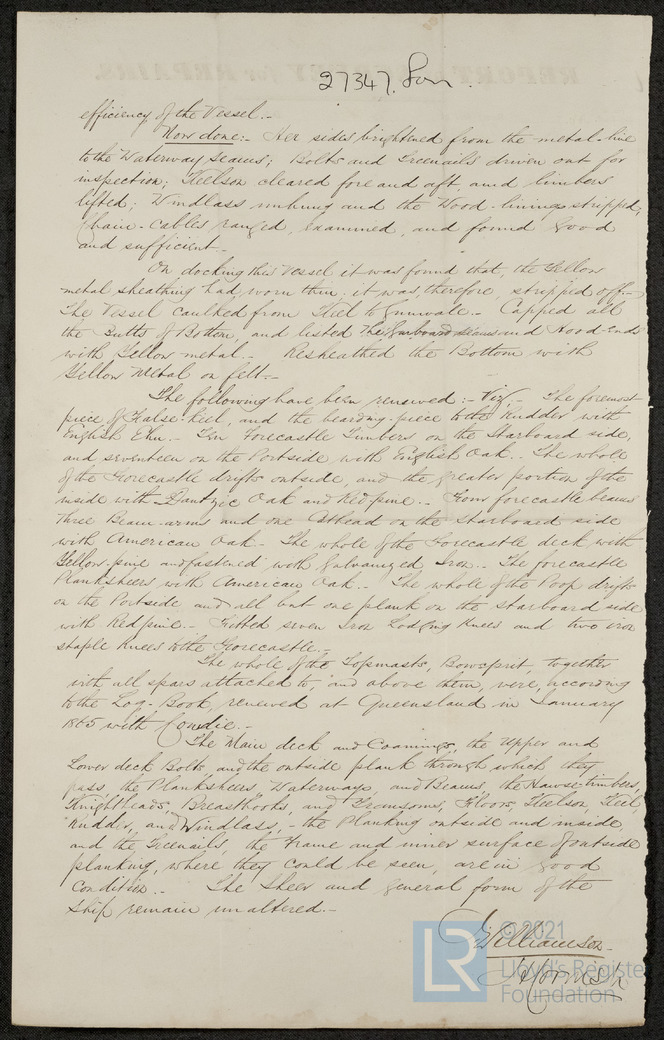 27347. Lon.
efficiency of the Vessel.-
Now done:- Her sides brightened from the metal-line
to the Waterway Seams; Bolts and Treenails driven out for
inspection; Keelson cleared fore and aft, and limbers
lifted; Windlass unhung and the Wood-linings stripped;
Chain-Cables ranged, examined, and found good
and sufficient.-
On docking this Vessel it was found that, the Yellow
metal sheathing had worn thin; it was, therefore, stripped off.-
The Vessel caulked from Keel to Gunwale.- Capped all
the Butts of Bottom, and listed the Garboard seams and Hood-Ends
with Yellow metal.- Resheathed the Bottom with
Yellow Metal on felt.-
The following have been renewed:- Viz,- The foremost
piece of False-keel, and the bearding-piece to the Rudder with
English Elm.- Ten Forecastle Timbers on the Starboard side,
and seventeen on the Portside with English Oak.- The whole
of the Forecastle drifts outside, and the greater portion of the
inside with Dantzic Oak and Red pine.- Four forecastle beams
three Beam-arms and one Cathead on the starboard side
with American Oak.- The whole of the Forecastle deck with
Yellow-pine and fastened with galvanized Iron.- The forecastle
Planksheers with American Oak.- The whole of the Poop drifts
on the Portside and all but one plank on the starboard side
with Red pine.- Fitted seven Iron Lodging Knees and two iron
staple Knees to the Forecastle.-
The whole of the Topmasts, Bowsprit, together
with all spars attached to, and above them, were, according
to the Log-Book, renewed at Queensland in January
1865 with Cowdie.-
The Main deck and Coamings, the Upper and
Lower deck Bolts, and the outside plank through which they
pass, the Planksheers, Waterways, and Beams, the Hawse-timbers,
Knightheads, Breasthooks, and Transoms, Floors, Keelson, Keel,
Rudder, and Windlass,- the Planking outside and inside
and the Treenails, the Frame and inner surface of outside
planking, where they could be seen, are in good
Condition.- The Sheer and general form of the
Ship remain unaltered.-
Williamson
© 2021
LR
Lloyd's Register
Foundation